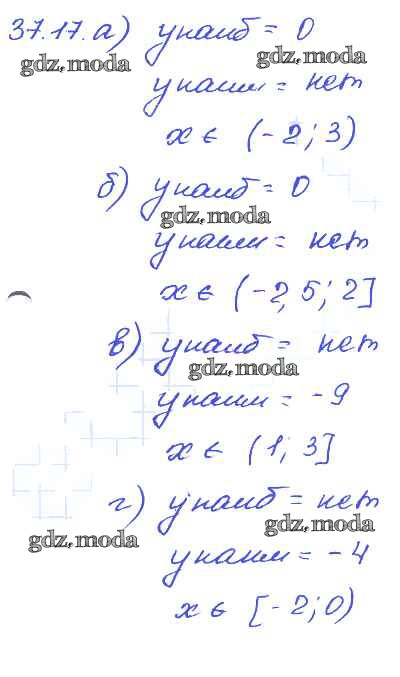 37.17. а) yнаиб = 0
gdz.moda
gdz.moda
yнаим = нет
x ∈ (-2; 3)
б) yнаиб = 0
gdz.moda
yнаим = нет
x ∈ (-2,5; 2]
в) yнаиб = нет
gdz.moda
yнаим = -9
x ∈ (1; 3]
г) yнаиб = нет
gdz.moda
gdz.moda
yнаим = -4
x ∈ [-2; 0)